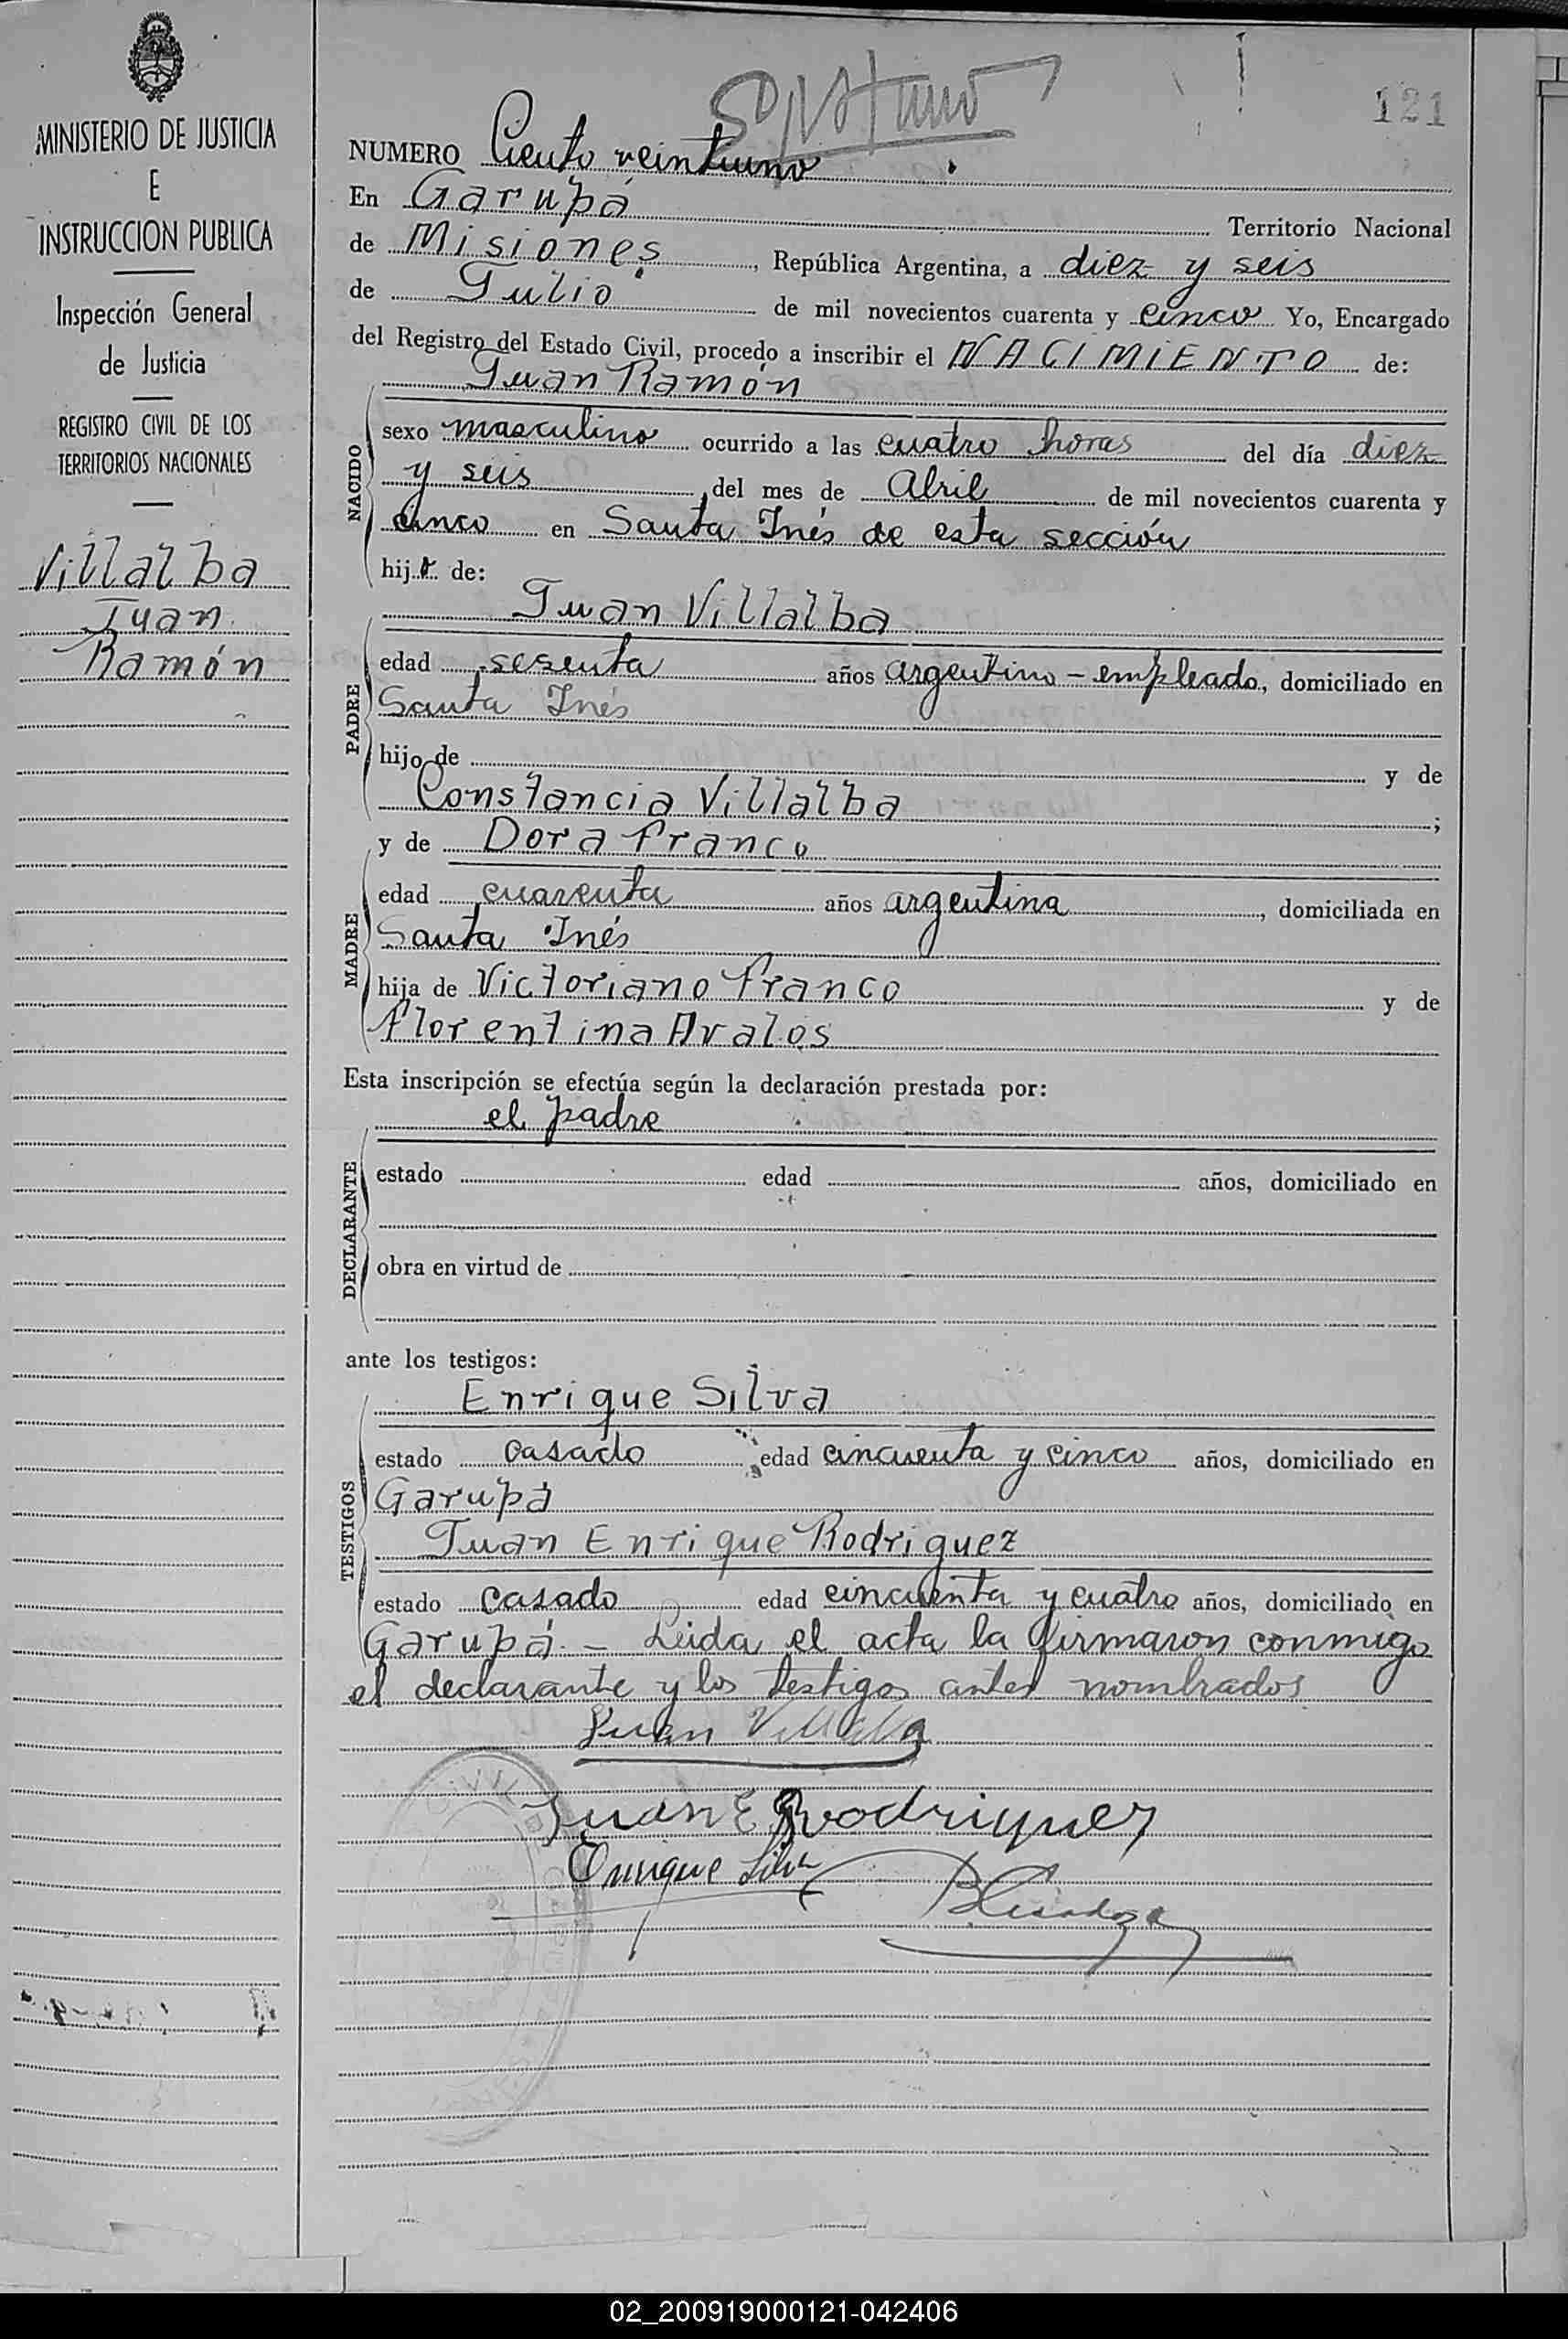 121
MINISTERIO DE JUSTICIA
E
INSTRUCCION PUBLICA
Inspección General
de Justicia
REGISTRO CIVIL DE LOS
TERRITORIOS NACIONALES
Villalba
Juan
Ramón
NUMERO Ciento veintiuno
En Garupá Territorio Nacional
de Misiones, República Argentina, a diez y seis
de Julio de mil novecientos cuarenta y cinco Yo, Encargado
del Registro del Estado Civil, procedo a inscribir el NACIMIENTO de:
Juan Ramón
NACIDO
sexo masculino ocurrido a las cuatro horas del día diez
y seis del mes de Abril de mil novecientos cuarenta y
cinco en Santa Inés de esta sección
hijo de:
Juan Villalba
PADRE
edad sesenta años argentino - empleado, domiciliado en
Santa Inés
hijo de y de
Constancia Villalba;
y de Dora Franco
MADRE
edad cuarenta años argentina, domiciliada en
Santa Inés
hija de Victoriano Franco y de
Florentina Avalos
Esta inscripción se efectúa según la declaración prestada por:
el padre
DECLARANTE
estado edad años, domiciliado en
obra en virtud de
ante los testigos:
Enrique Silva
TESTIGOS
estado casado edad cincuenta y cinco años, domiciliado en
Garupá
Juan Enrique Rodriguez
estado casado edad cincuenta y cuatro años, domiciliado en
Garupá. - Leida el acta la firmaron conmigo
el declarante y los testigos antes nombrados
Juan Villalba
Juan E Rodriguez
Enrique Silva
02_200919000121-042406